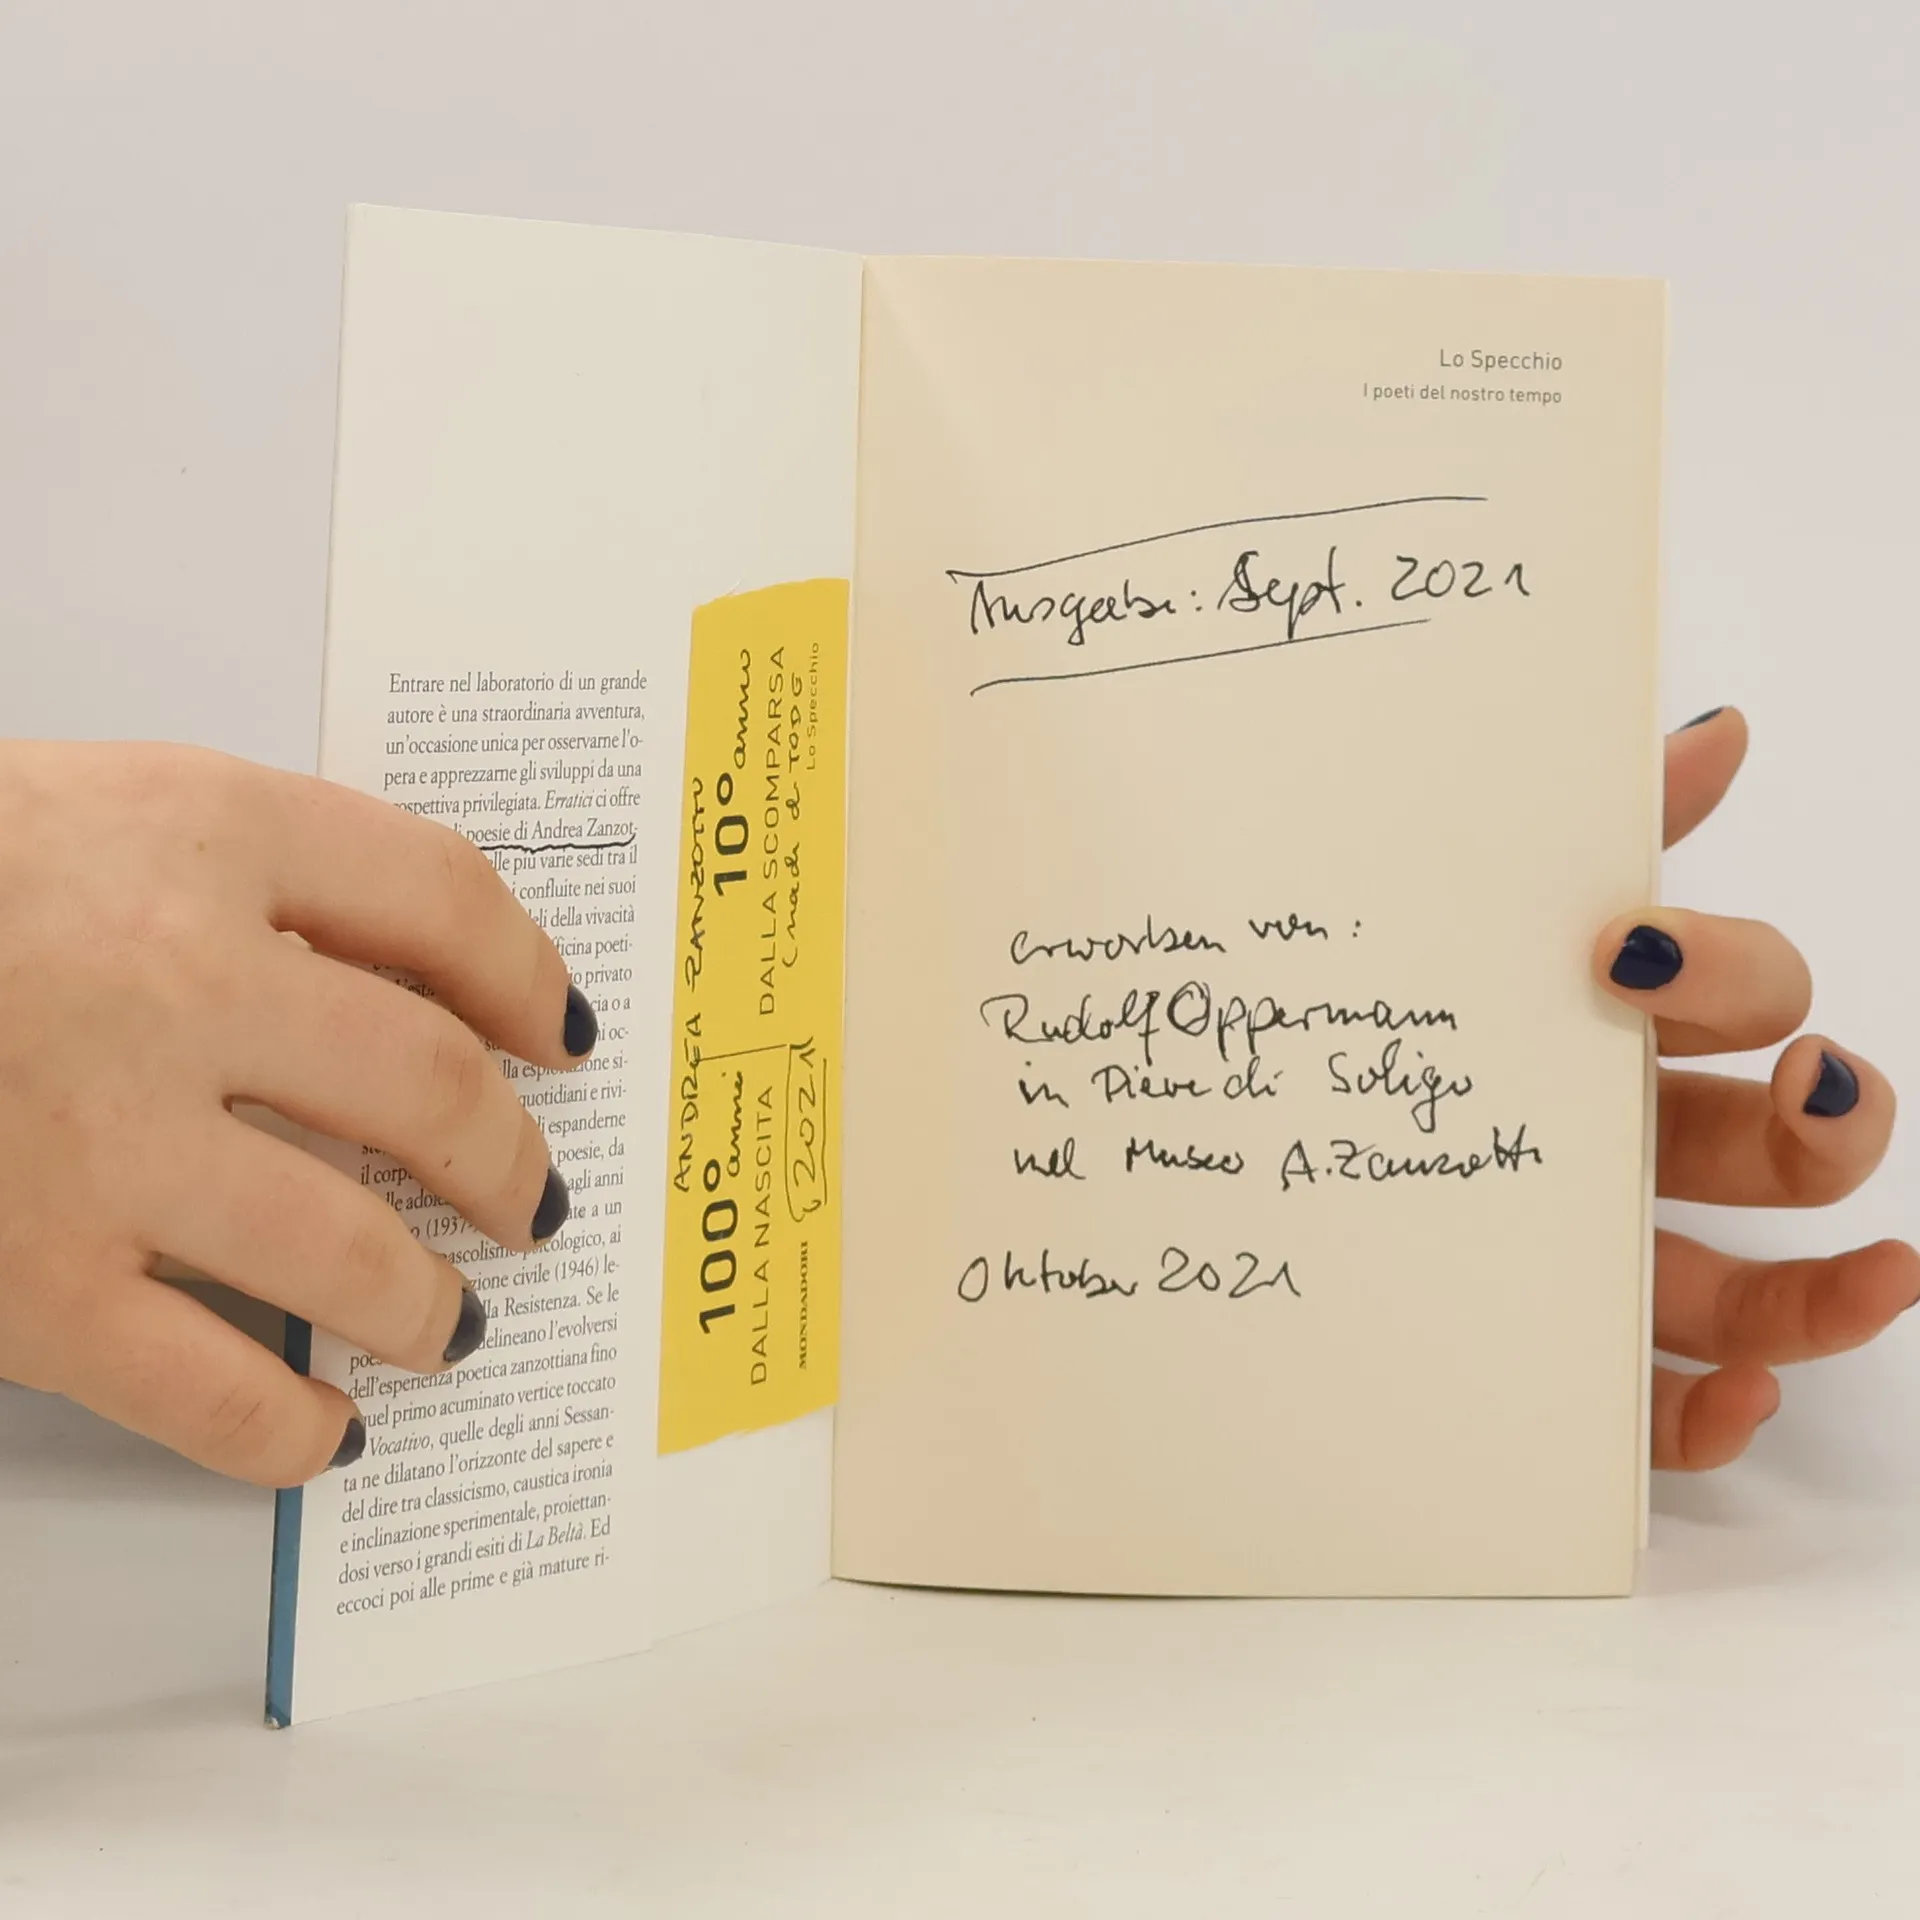 Entrare nel laboratorio di un grande
autore è una straordinaria avventura,
un'occasione unica per osservarne l'o-
pera e apprezzarne gli sviluppi da una
rospettiva privilegiata. Erratici ci offre
li poesie di Andrea Zanzot-
lle più varie sedi tra il
i confluite nei suoi
deli della vivacità
fficina poeti-
io privato
cia o a
ni oc-
lla esplorazione si-
quotidiani e rivi-
li espanderne
i poesie, da
il corp agli anni
lle adole ate a un
o (1937- 
ascolismo psicologico, ai
zione civile (1946) le-
lla Resistenza. Se le
poes delineano l'evolversi
dell'esperienza poetica zanzottiana fino
quel primo acuminato vertice toccato
Vocativo, quelle degli anni Sessan-
ta ne dilatano l'orizzonte del sapere e
del dire tra classicismo, caustica ironia
e inclinazione sperimentale, proiettan-
dosi verso i grandi esiti di La Beltà. Ed
eccoci poi alle prime e già mature ri-
ANDREA ZANZOTTO
100° anni
DALLA NASCITA
2021
MONDADORI
10° anno
DALLA SCOMPARSA
Lo Specchio
Lo Specchio
I poeti del nostro tempo
Ausgabe: Sept. 2021
erworben von:
Rudolf Oppermann
in Pieve di Soligo
nel Museo A. Zanzotto
Oktober 2021